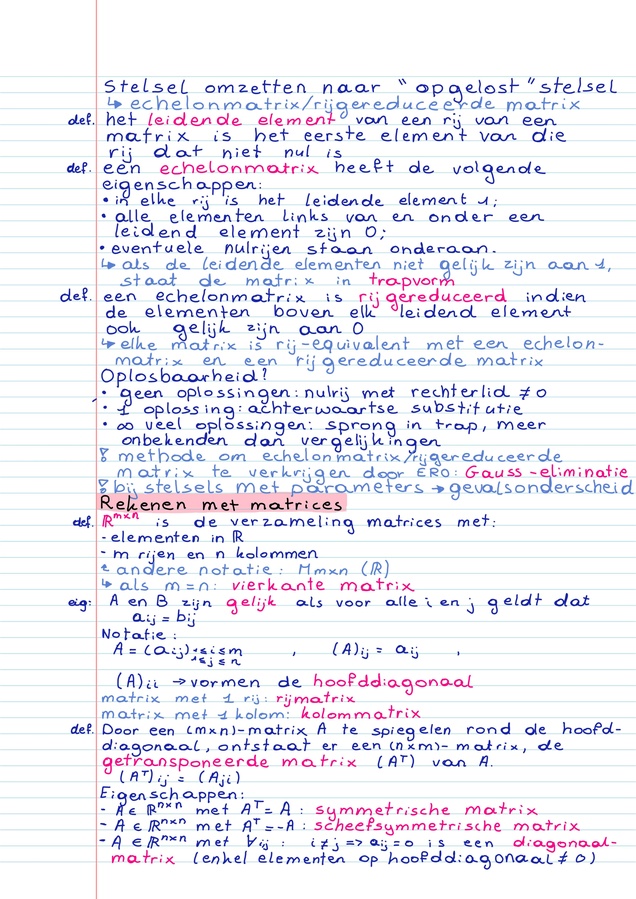 Stelsel omzetten naar "opgelost" stelsel
↳ echelonmatrix/rijgereduceerde matrix
def. het leidende element van een rij van een
matrix is het eerste element van die
rij dat niet nul is
def. een echelonmatrix heeft de volgende
eigenschappen:
• in elke rij is het leidende element 1;
• alle elementen links van en onder een
leidend element zijn 0;
• eventuele nulrijen staan onderaan.
↳ als de leidende elementen niet gelijk zijn aan 1,
staat de matrix in trapvorm
def. een echelonmatrix is rijgereduceerd indien
de elementen boven elk leidend element
ook gelijk zijn aan 0
↳ elke matrix is rij-equivalent met een echelon-
matrix en een rijgereduceerde matrix
Oplosbaarheid?
• geen oplossingen: nulrij met rechterlid ≠ 0
• 1 oplossing: achterwaartse substitutie
• ∞ veel oplossingen: sprong in trap, meer
onbekenden dan vergelijkingen
! methode om echelonmatrix/rijgereduceerde
matrix te verkrijgen door ERO: Gauss-eliminatie
! bij stelsels met parameters → gevalsonderscheid
Rekenen met matrices
def. ℝᵐˣⁿ is de verzameling matrices met:
- elementen in ℝ
- m rijen en n kolommen
↳ andere notatie: Mm×n (ℝ)
↳ als m=n: vierkante matrix
eig: A en B zijn gelijk als voor alle i en j geldt dat
aij = bij
Notatie:
A = (aij) 1≤i≤m , (A)ij = aij ,
1≤j≤n
(A)ii → vormen de hoofddiagonaal
matrix met 1 rij: rijmatrix
matrix met 1 kolom: kolommatrix
def. Door een (m×n)-matrix A te spiegelen rond de hoofd-
diagonaal, ontstaat er een (n×m)-matrix, de
getransponeerde matrix (Aᵀ) van A.
(Aᵀ)ij = (Aji)
Eigenschappen:
- A ∈ ℝⁿˣⁿ met Aᵀ = A : symmetrische matrix
- A ∈ ℝⁿˣⁿ met Aᵀ = -A : scheefsymmetrische matrix
- A ∈ ℝⁿˣⁿ met ∀ij : i≠j => aij=0 is een diagonaal-
matrix (enkel elementen op hoofddiagonaal ≠ 0)